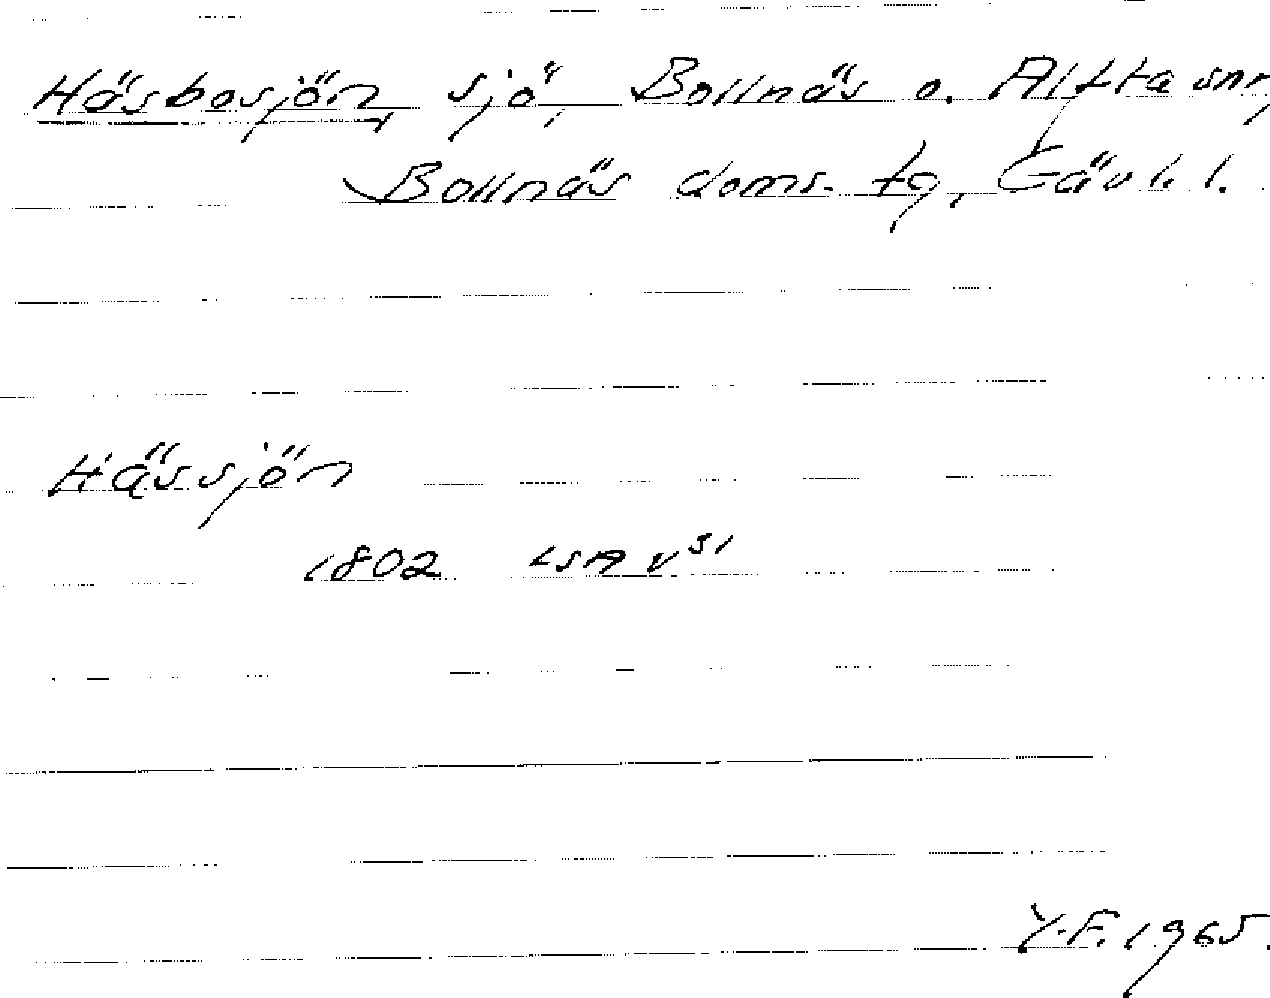 Häsbosjön, sjö, Bollnäs o. Alfta snr,
Bollnäs doms. tg, Gävl. l.
Hässjön
1802 LSA v 31
Y.F. 1965.